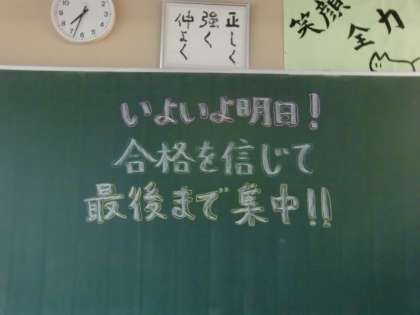 正しく
強く
仲よく
笑顔
全力
いよいよ明日!
合格を信じて
最後まで集中!!